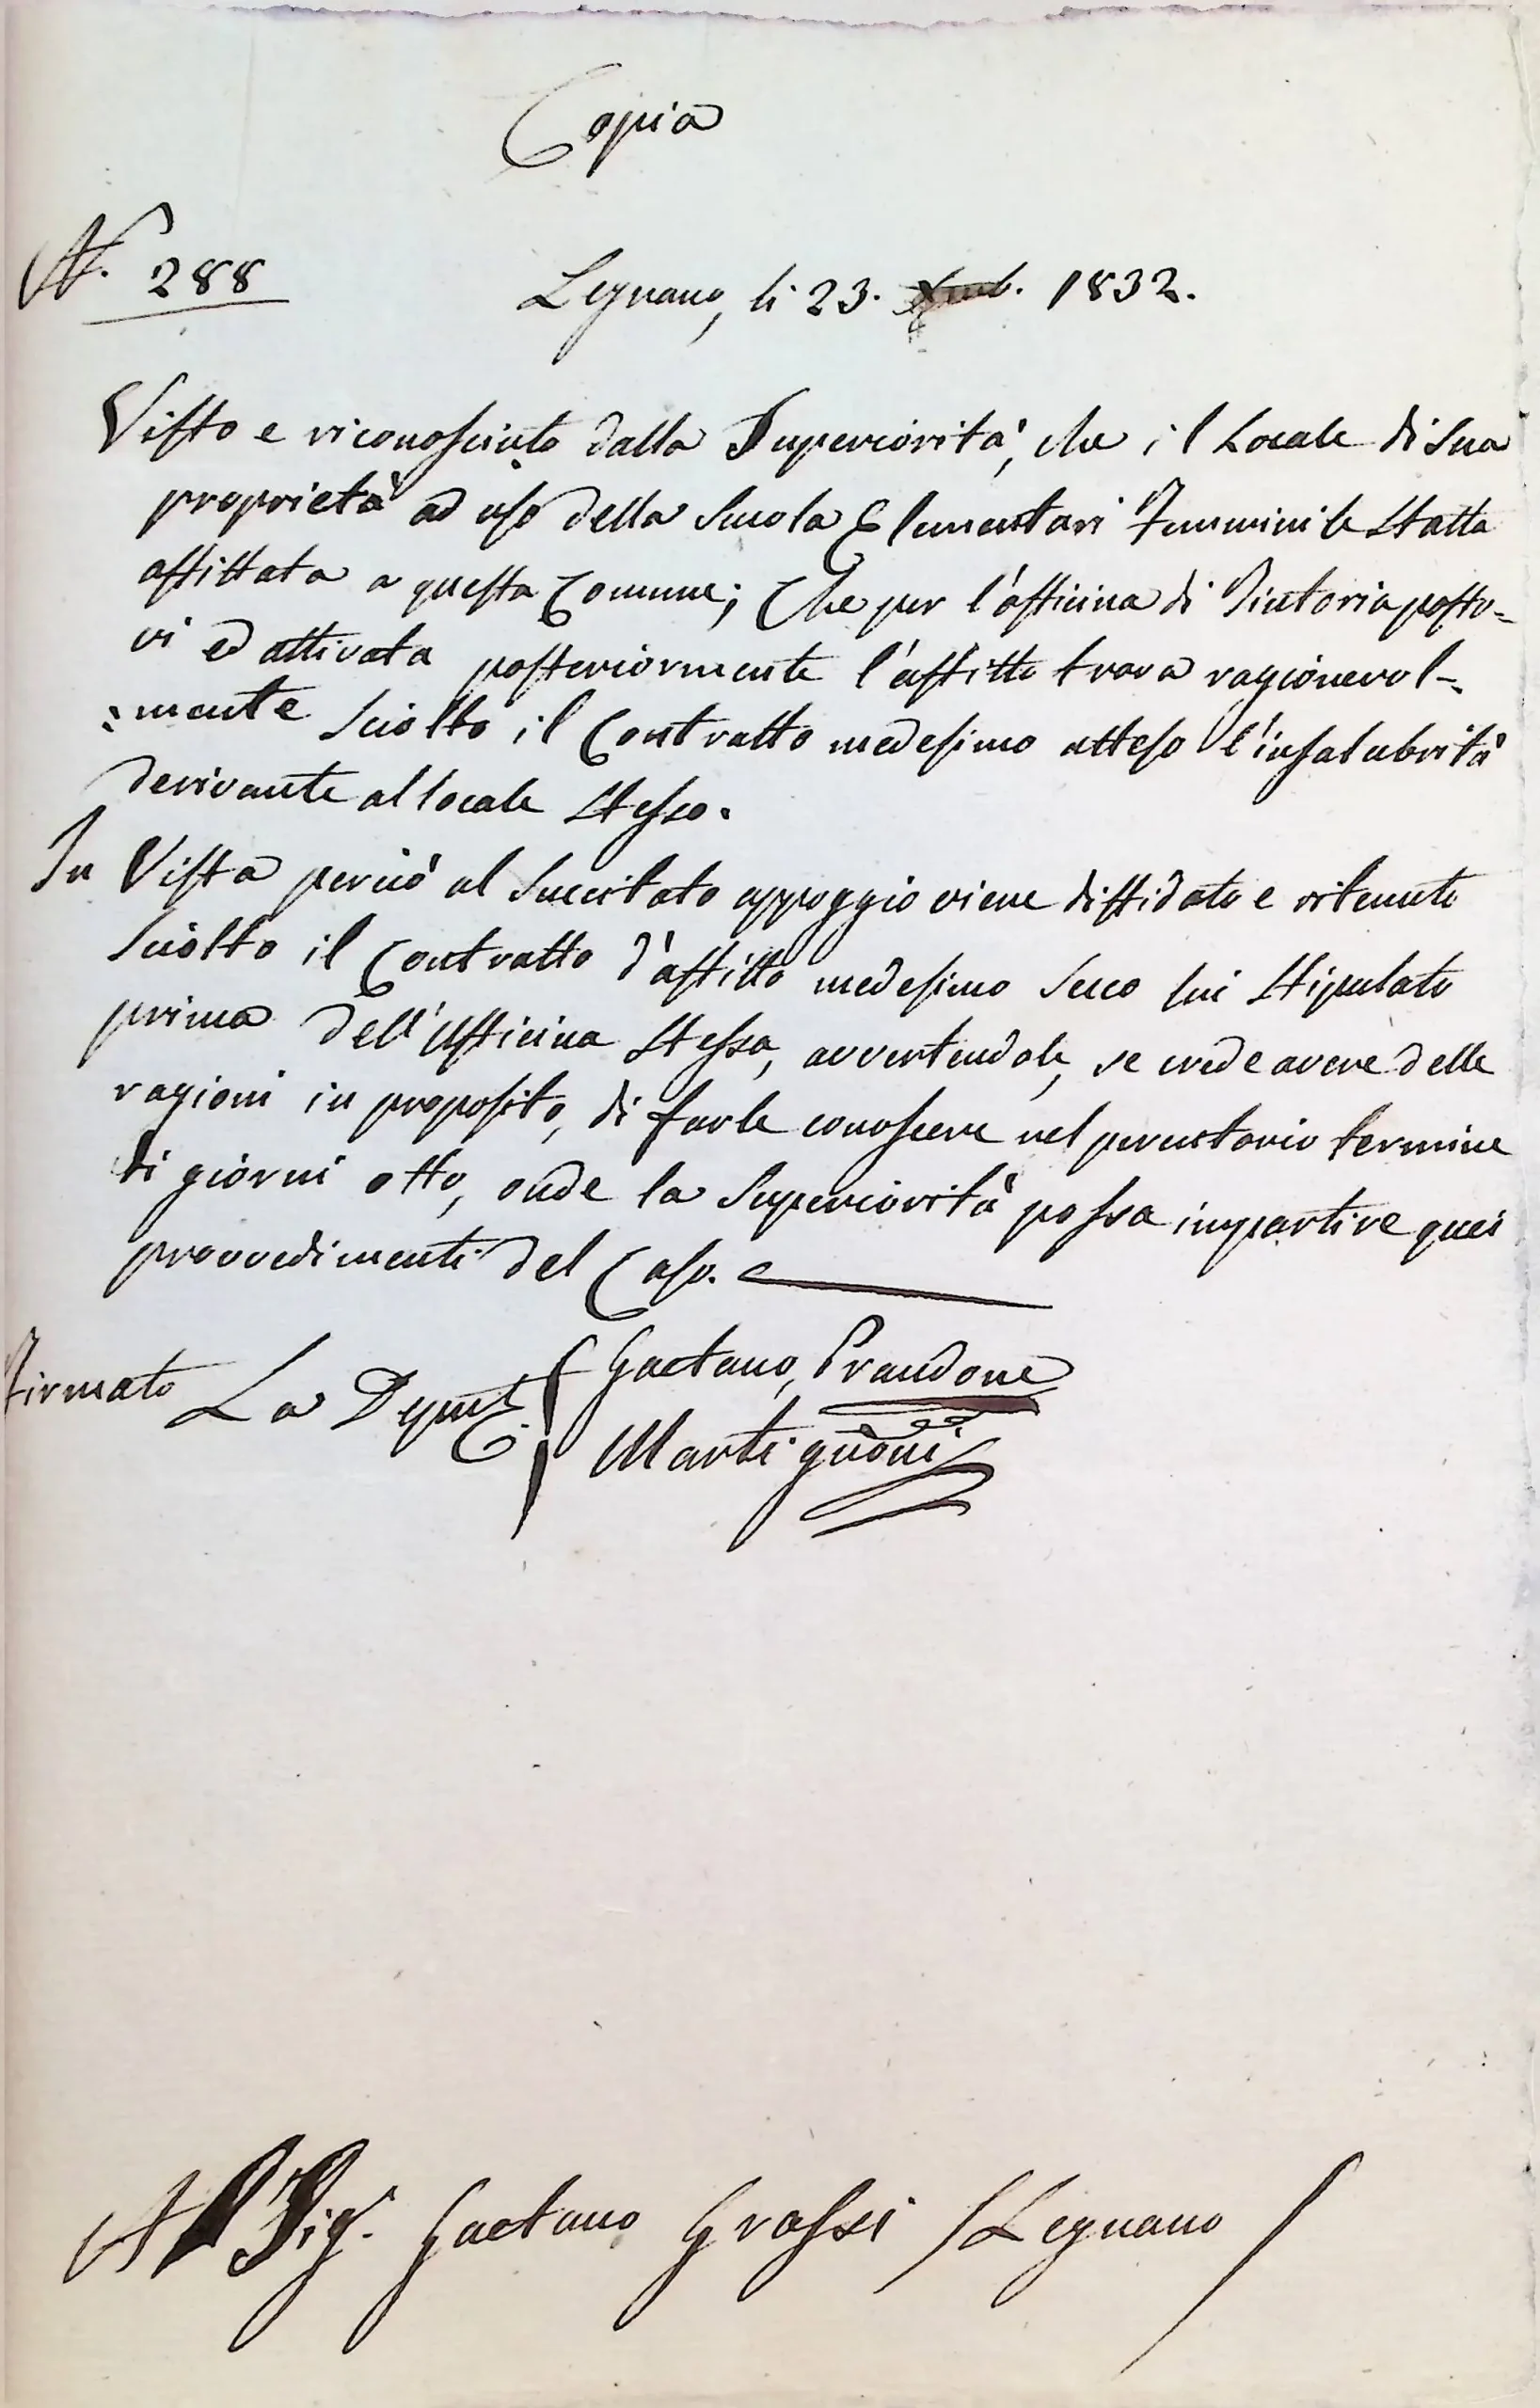 Copia
N. 288
Legnano, li 23. 1832.
Visto e riconosciuto dalla Superiorità, che il Locale di sua
proprietà ad uso della Scuola Elementari Femminile Statta
affittata a questa Comune; Che per l'officina di Tintoria posto-
vi ed attivata posteriormente l'affitto trova ragionevol-
=mente sciolto il Contratto medesimo atteso l'insalubrità
derivante al locale Stesso.
In Vista perciò al succitato appoggio viene diffidato e ritenuto
sciolto il Contratto d'affitto medesimo seco lui Stipulato
prima dell'Officina Stessa, avvertendole, se crede avere delle
ragioni in proposito, di farle conoscere nel perentorio termine
di giorni otto, onde la Superiorità possa impartire quei
provvedimenti del Caso.
Firmato La Deput.e Gaetano Prandone
Martignoni
Al Sig. Gaetano Grassi / Legnano /